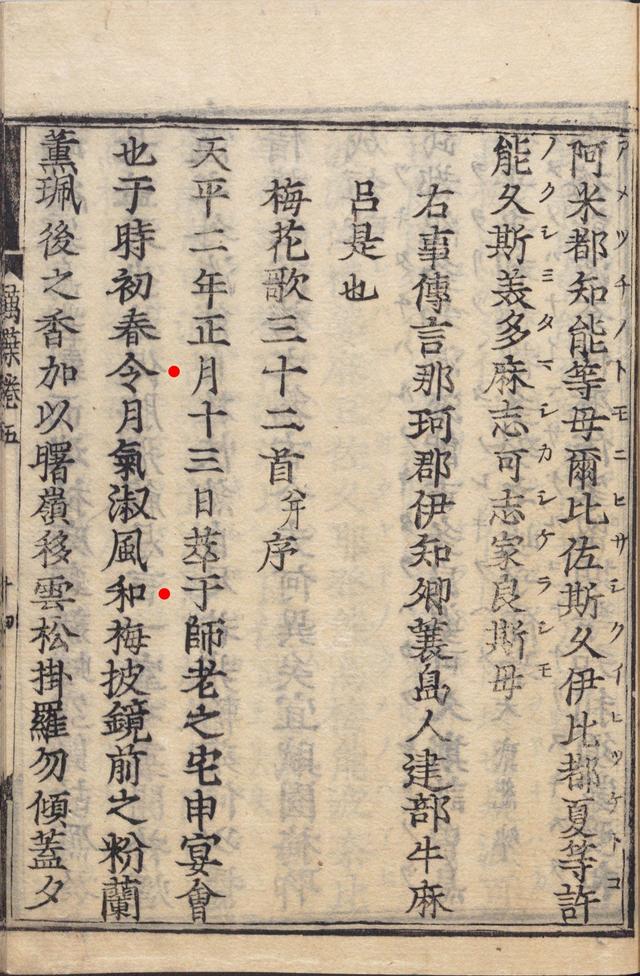 アメツチノトモニヒサシクイヒツケトコ
阿米都知能等母爾比佐斯久伊比都夏等許
ノクシミタマシカシケラシモ
能久斯美多麻志可志家良斯母
右事傳言那珂郡伊知鄉蓑島人建部牛麻
呂是也
梅花歌三十二首并序
天平二年正月十三日萃于師老之宅申宴會
也于時初春令月氣淑風和梅披鏡前之粉蘭
薰珮後之香加以曙嶺移雲松掛羅勿傾蓋夕
萬葉卷五
十四